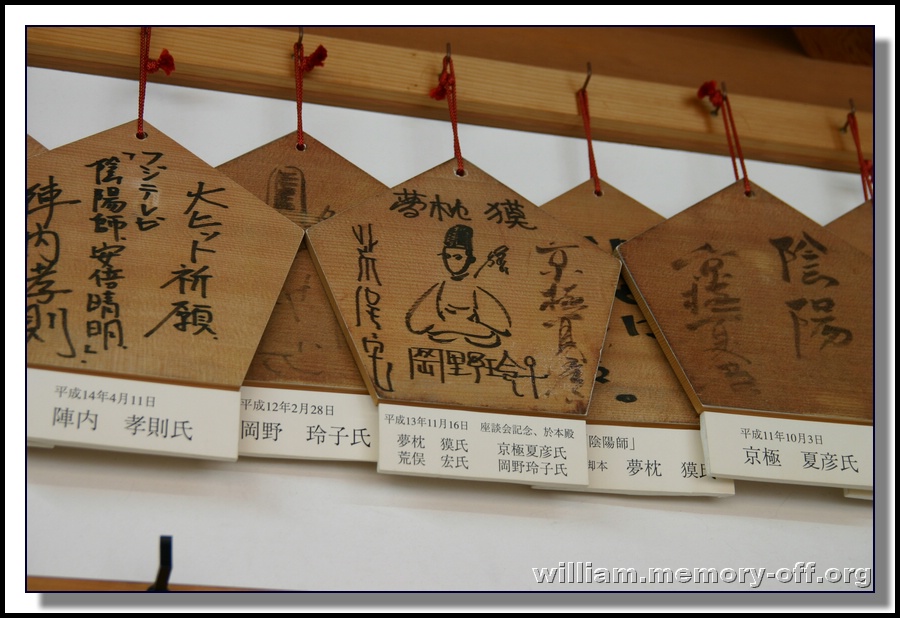 大ヒット祈願
フジテレビ
「陰陽師 安倍晴明」
陣内孝則
平成14年4月11日
陣内 孝則氏
平成12年2月28日
岡野 玲子氏
夢枕 獏
京極夏彦
荒俣宏
岡野玲子
平成13年11月16日 座談会記念、於本殿
夢枕 獏氏 京極夏彦氏
荒俣 宏氏 岡野玲子氏
陰陽師」
脚本 夢枕 獏氏
陰陽
京極夏彦
平成11年10月3日
京極 夏彦氏
william.memory-off.org